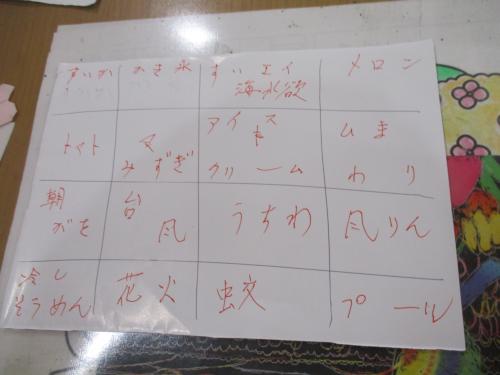 すいか
かき氷
すいエイ
海水欲
メロン
トマト
みずぎ
アイス
クリーム
ひま
わり
朝
がを
台
風
うちわ
風りん
冷し
そうめん
花火
蚊
プール